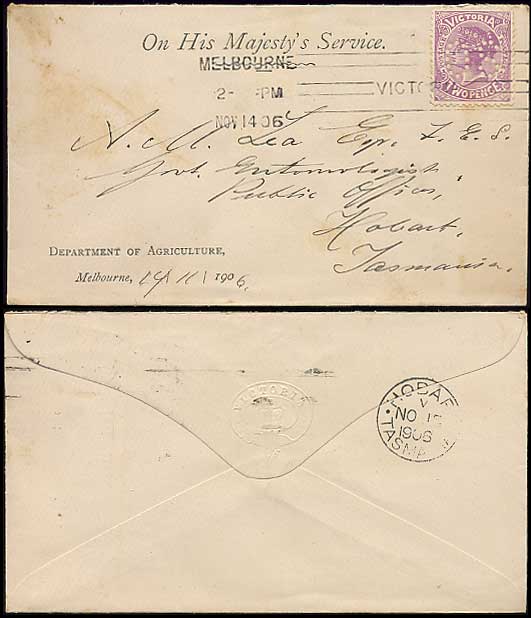 On His Majesty's Service.
VICTORIA
TWO PENCE
MELBOURNE
2- PM
VICTO
NOV 14 06
A. M. Lea Esq. F. E. S.
Govt. Entomologist,
Public Offices,
Hobart,
Tasmania.
DEPARTMENT OF AGRICULTURE,
Melbourne, 14/11/1906.
VICTORIA
HOBAR
NO 1
1906
TASMA